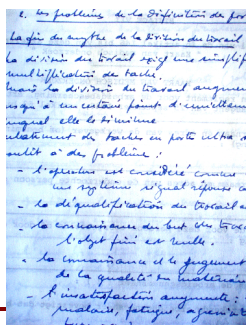 2. Les problèmes de la définition de pos
La fin du mythe de la Division du travail
La division du travail exige une simplif
multiplication de tache.
mais la division du travail augmen
jusqu'à un certain point d'
auquel elle le diminue
des taches en poste ultra s
outit à des problème :
- l'operateur est considéré comme
un système signal réponse
- la déqualification du travail
- la connaissance du but des trav
l'objet fini est nulle.
- la connaissance et le jugement
de la qualité
- l'insatisfaction augmente :
malaise, fatigue,